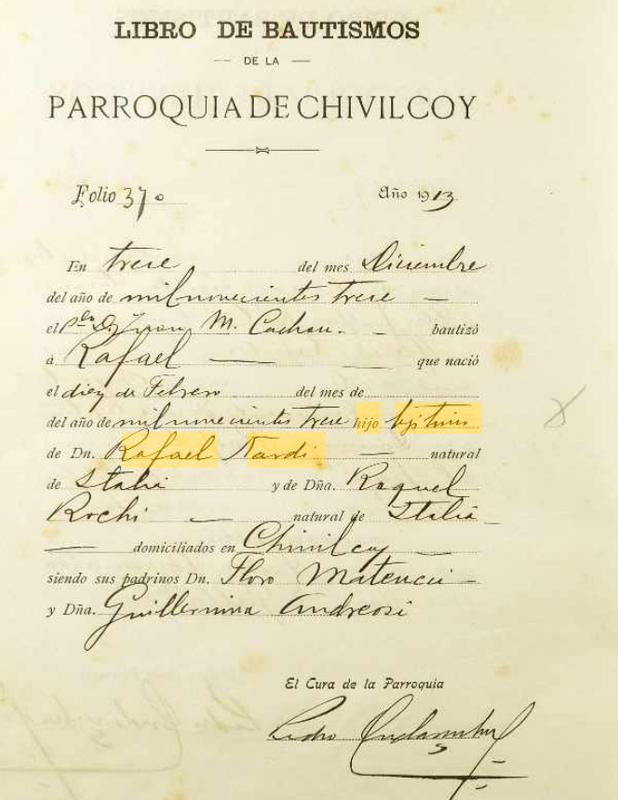 LIBRO DE BAUTISMOS
DE LA
PARROQUIA DE CHIVILCOY
Folio 370 Año 1913
En trece del mes Diciembre
del año de mil novecientos trece
el Juan M. bautizó
á Rafael que nació
el diez de Febrero del mes de
del año de mil novecientos trece hijo lejitimo
de Dn. Rafael Nardi natural
de Italia y de Dña. Raquel
Rochi natural de Italia
domiciliados en Chivilcoy
siendo sus padrinos Dn. Floro
y Dña. Guillermina Andreosi
El Cura de la Parroquia
Pedro